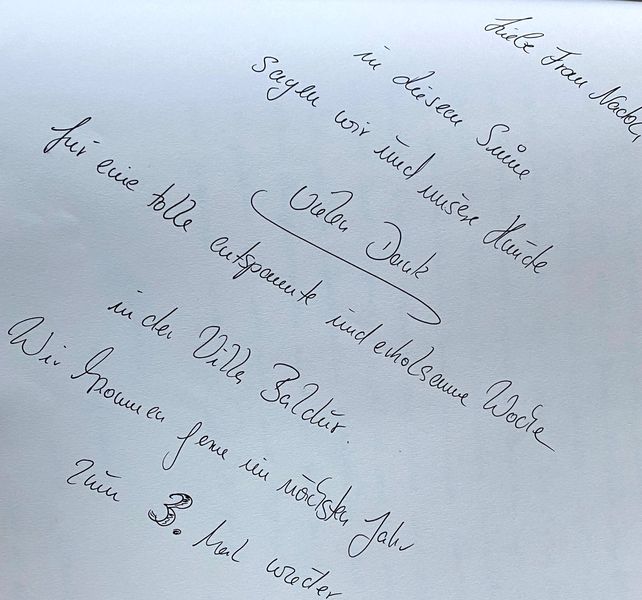 Liebe Frau
in diesem Sinne
sagen wir und unsere Hunde
Vielen Dank
für eine tolle entspannte und erholsame Woche
in der Villa Baldur.
Wir kommen gerne im nächsten Jahr
zum 3. Mal wieder